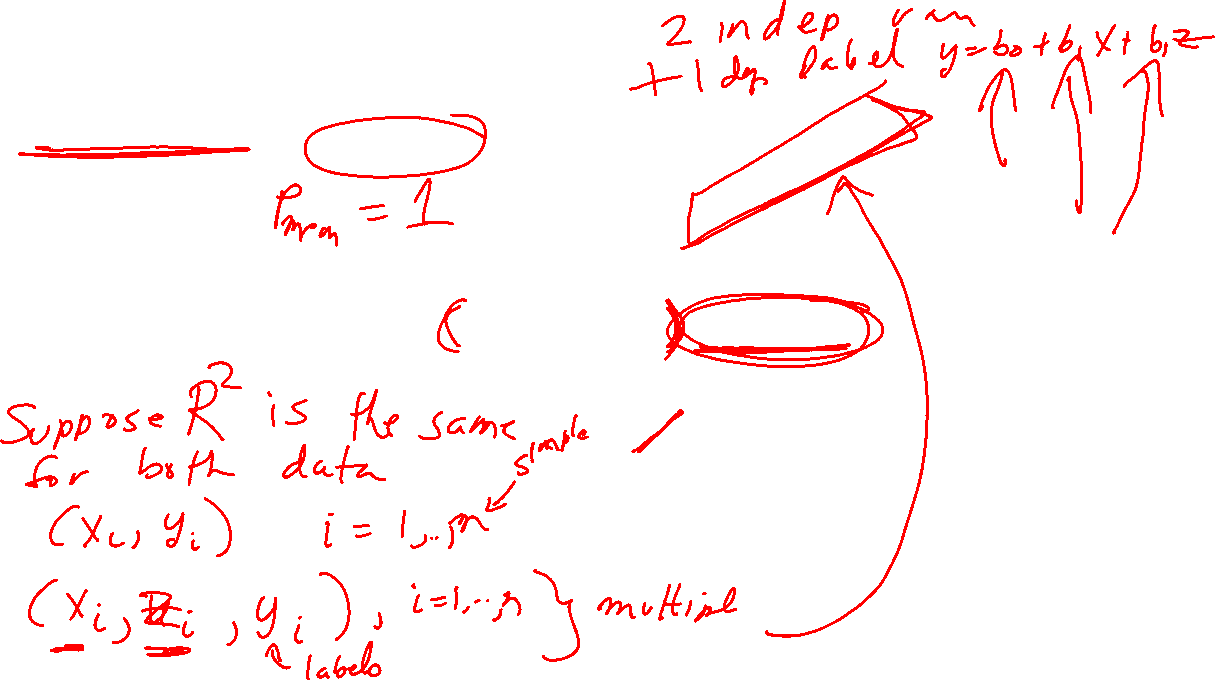 2 indep van
+ 1 dep label y = b₀ + b₁ x + b₁ z
P_mean = 1
(
Suppose R² is the same
for both data
simple
(xᵢ, yᵢ) i = 1,..,n
(xᵢ, zᵢ, yᵢ), i=1,..,n } multiple
labels